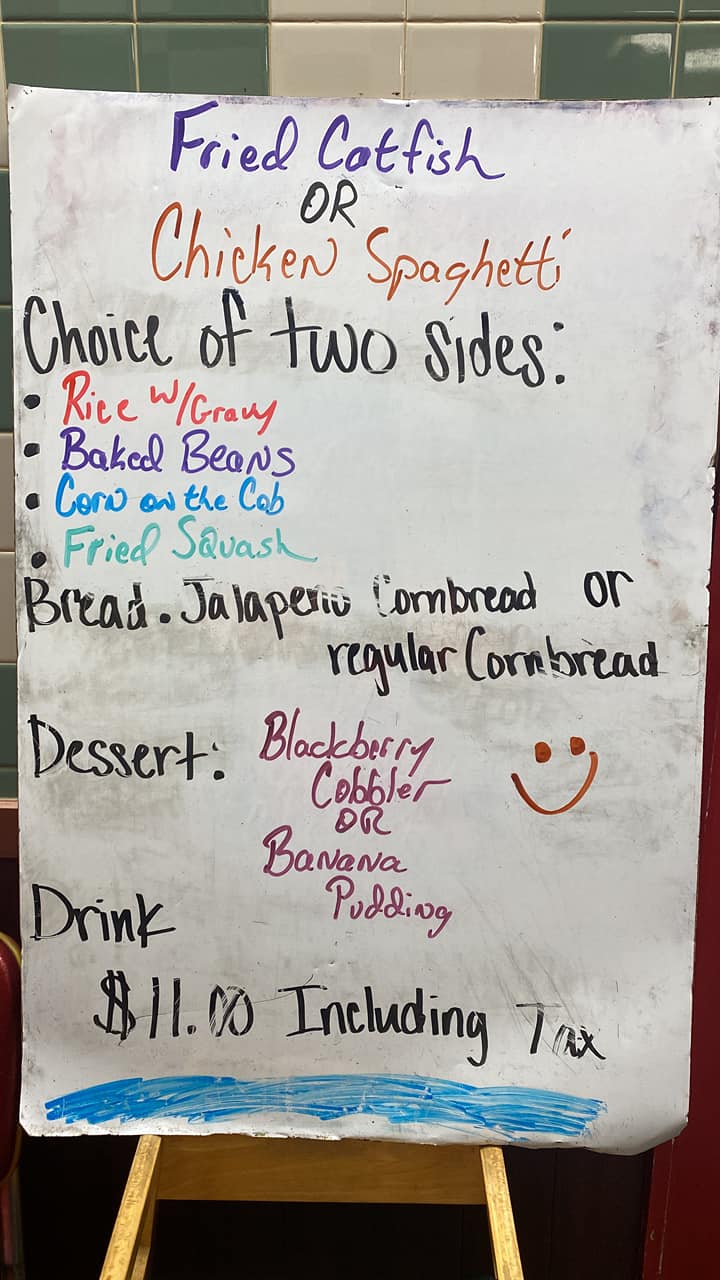 Fried Catfish
OR
Chicken Spaghetti
Choice of two sides:
• Rice w/Gravy
• Baked Beans
• Corn on the Cob
• Fried Squash
Bread. Jalapeno Cornbread or
regular Cornbread
Dessert: Blackberry
Cobbler
OR
Banana
Pudding
Drink
$11.00 Including Tax